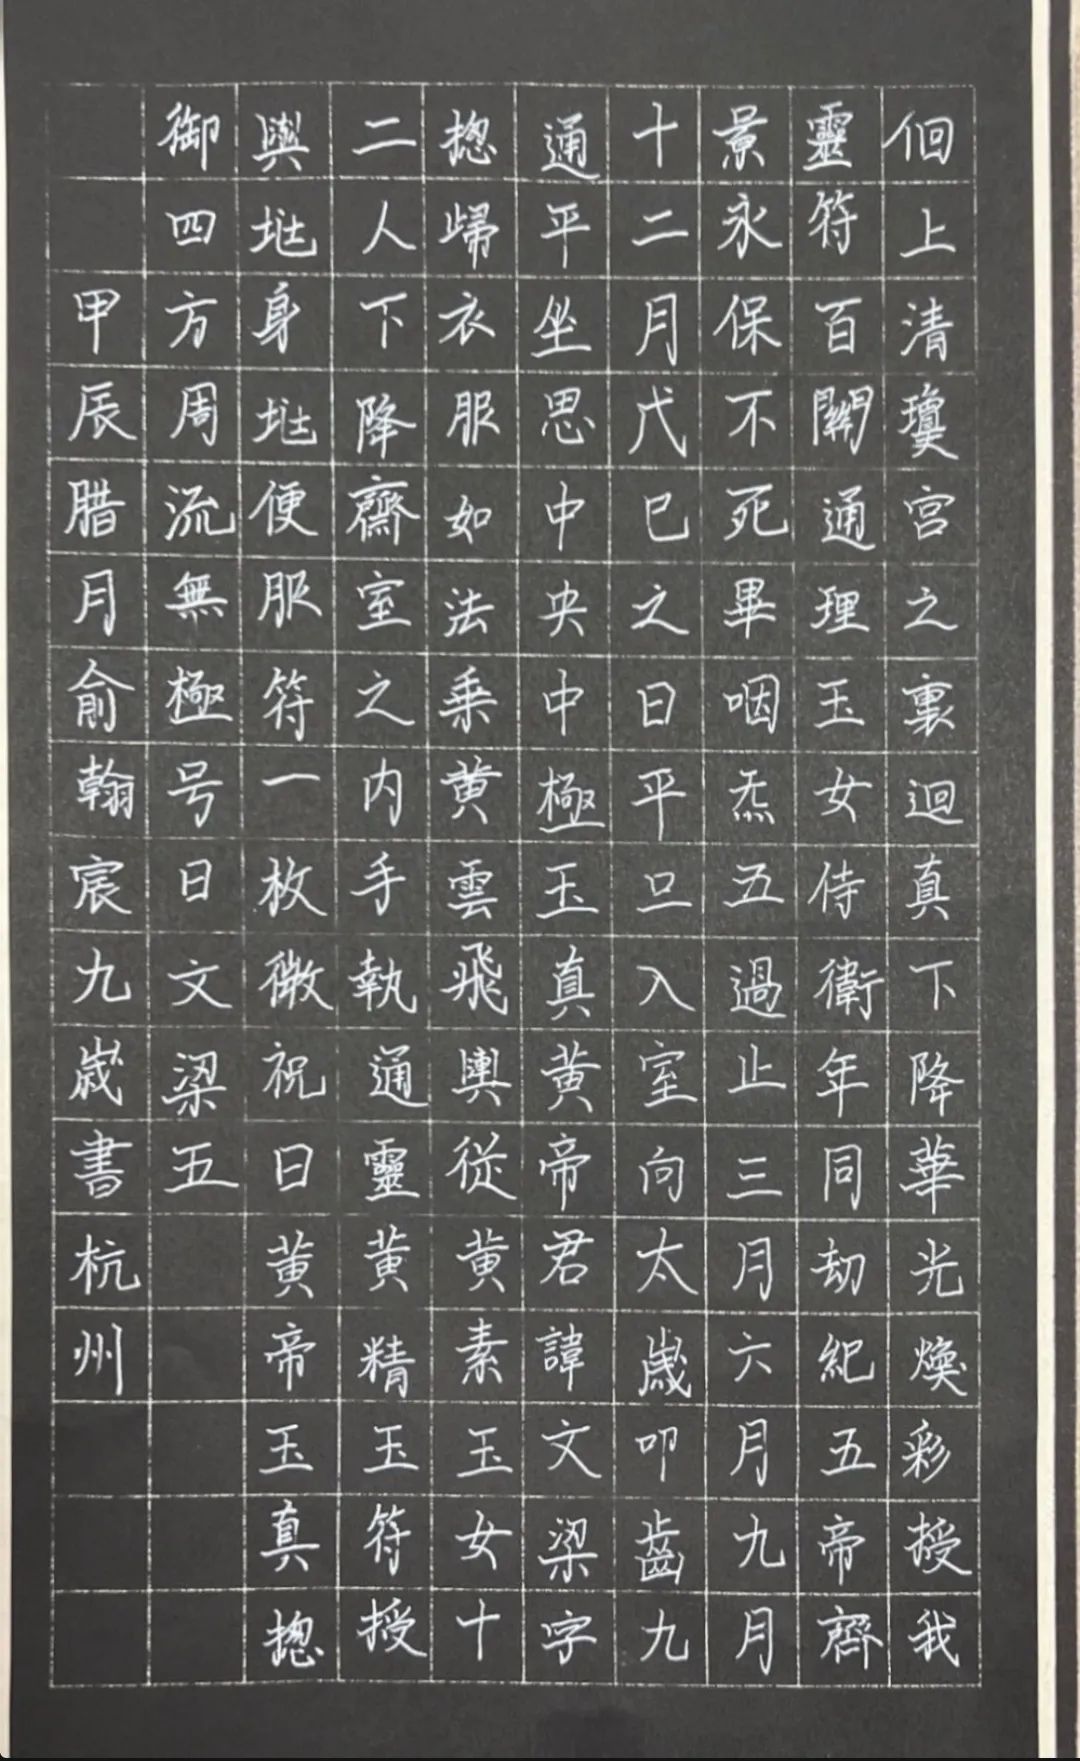 佪上清瓊宮之裏迴真下降華光煥彩授我
靈符百關通理玉女侍衛年同劫紀五帝齊
景永保不死畢咽炁五過止三月六月九月
十二月戊巳之日平旦入室向太歲叩齒九
通平坐思中央中極玉真黃帝君諱文梁字
捴歸衣服如法乘黃雲飛輿從黃素玉女十
二人下降齋室之內手執通靈黃精玉符授
與地身地便服符一枚微祝曰黃帝玉真捴
御四方周流無極号曰文梁五
甲辰腊月俞翰宸九歲書杭州